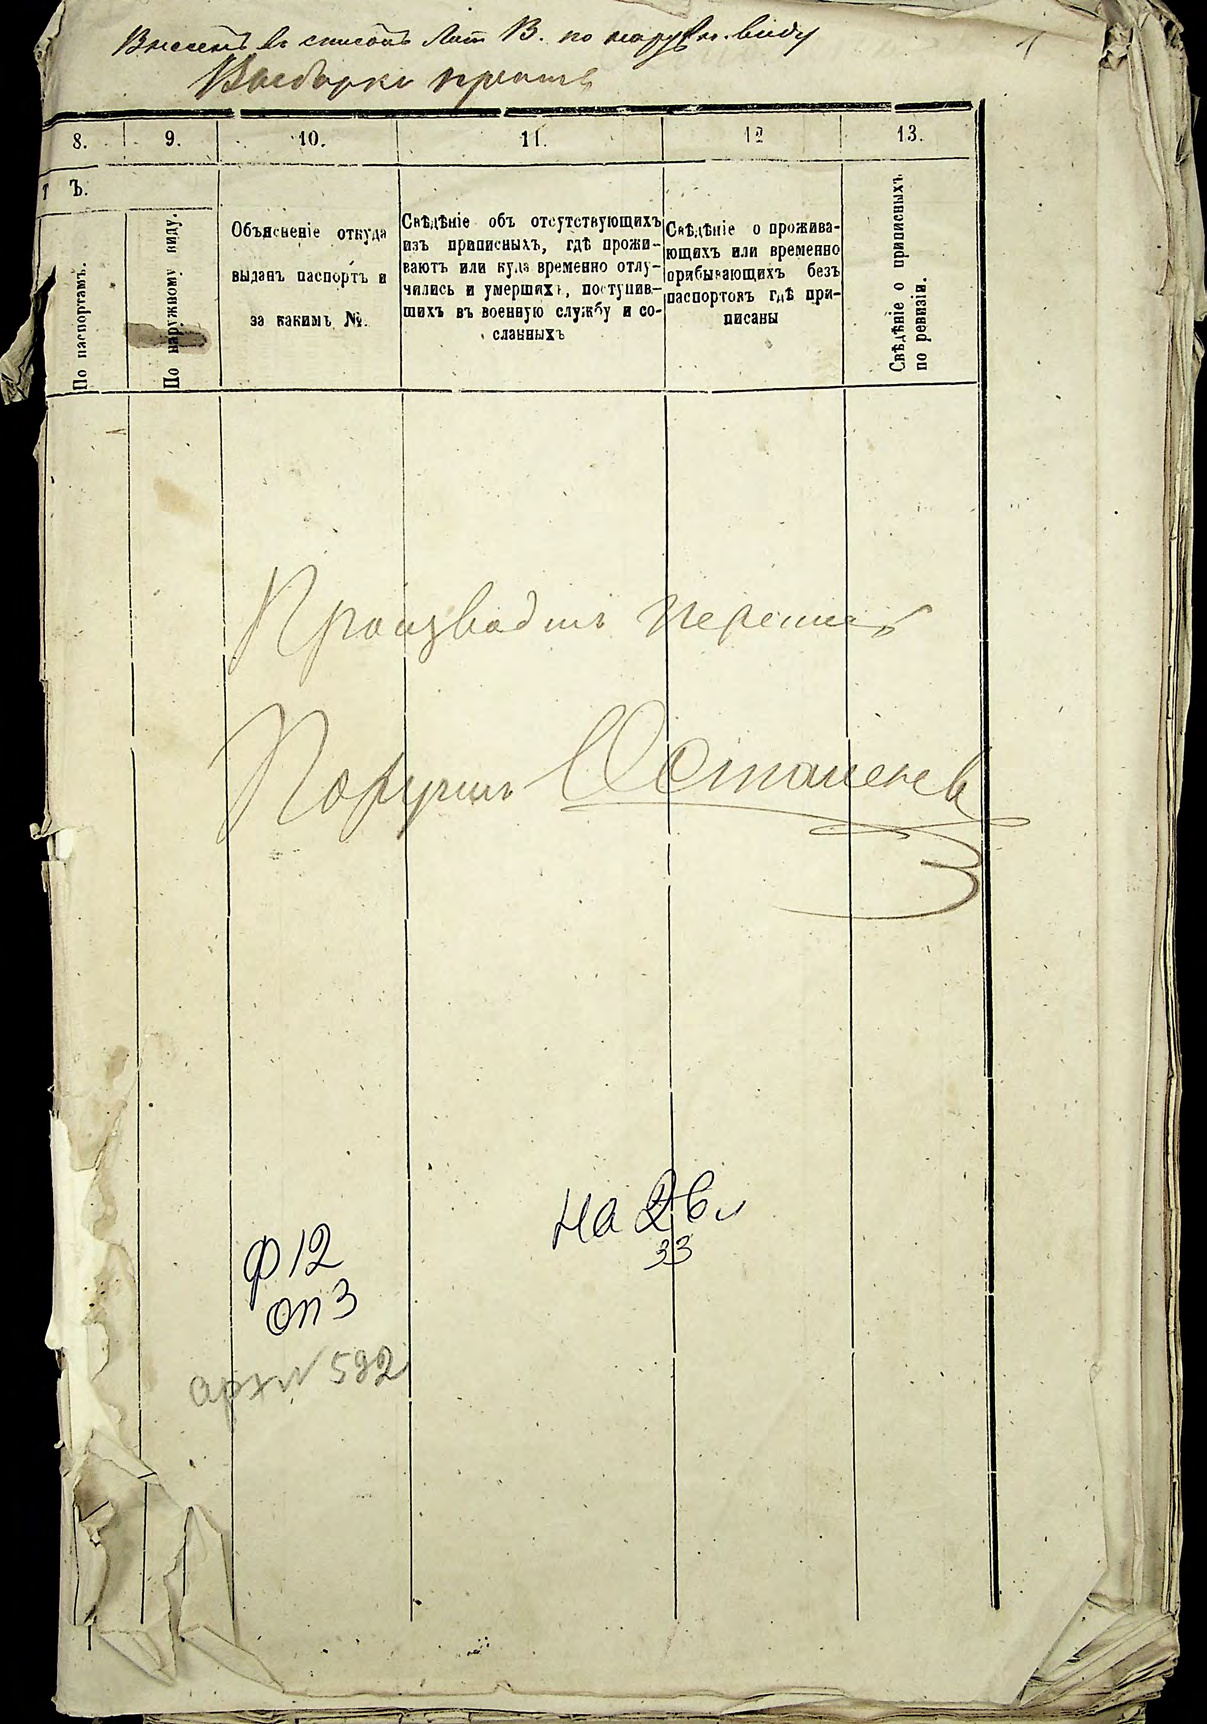 Внесенъ въ списокъ Лит В. по наружн. виду
1
8. 9. 10. 11. 12 13.
т Ъ.
По паспортамъ.
По наружному виду.
Объясненіе откуда
выданъ паспортъ и
за какимъ №.
Свѣдѣніе объ отсутствующихъ
изъ приписныхъ, гдѣ прожи-
ваютъ или куда временно отлу-
чились и умершихъ, поступив-
шихъ въ военную службу и со-
сланныхъ
Свѣдѣніе о прожива-
ющихъ или временно
прибывающихъ безъ
паспортовъ гдѣ при-
писаны
Свѣдѣніе о приписныхъ
по ревизіи.
Производилъ перепись
Поручикъ
на 26 л
33
Ф 12
оп 3
арх № 592